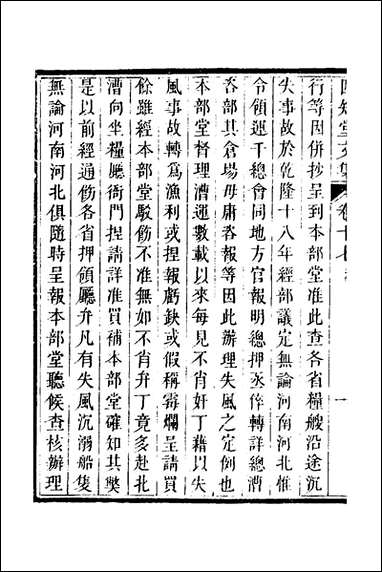 四知堂文集 卷十七
行等因併抄呈到本部堂准此查各省糧艘沿途沉
失事故於乾隆十八年經部議定無論河南河北惟
令領運千總會同地方官報明總押丞倅轉詳總漕
咨部其倉場毋庸咨報等因此辦理失風之定例也
本部堂督理漕運數載以來每見不肖奸丁藉以失
風事故轉為漁利或揑報虧缺或假稱霉爛呈請買
餘雖經本部堂駁飭不准無如不肖弁丁竟多赴北
漕向坐糧廳衙門揑請詳准買補本部堂確知其獘
是以前經通飭各省押領廳弁凡有失風沉溺船隻
無論河南河北俱隨時呈報本部堂聽候查核辦理